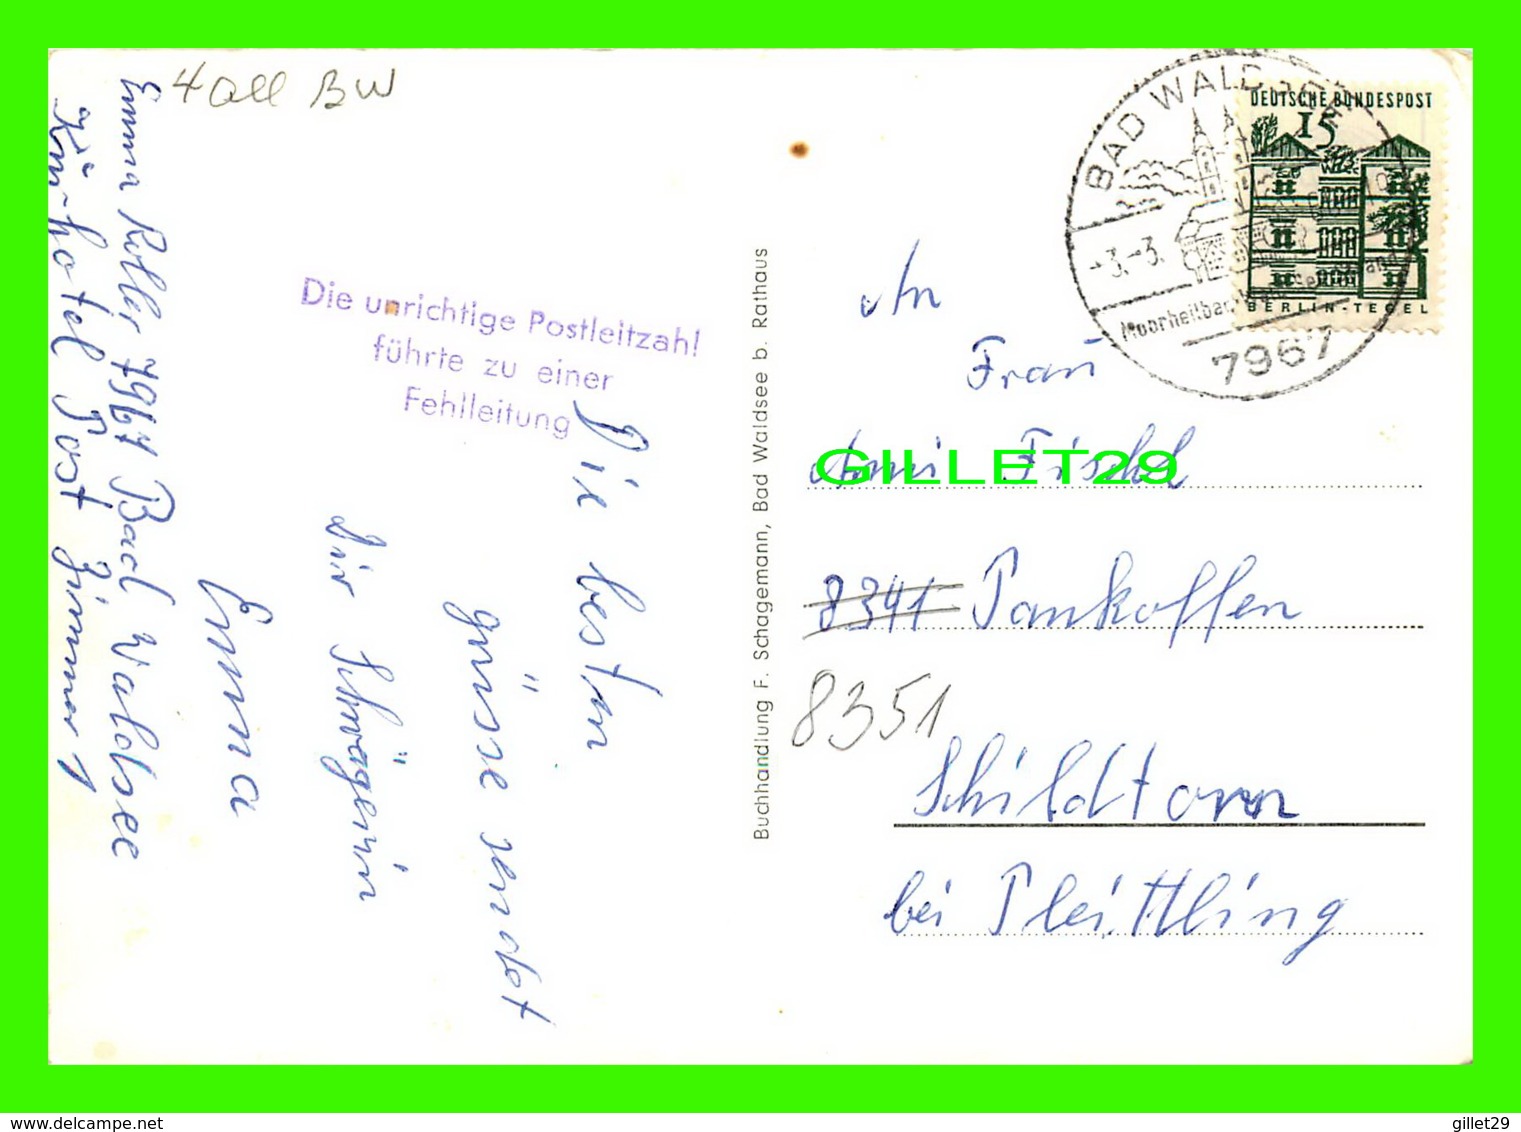 4 all BW
Emma Roller 7967 Bad Waldsee
Kur-hotel Post Zimmer 1
Die unrichtige Postleitzahl
führte zu einer
Fehlleitung
Die besten
grüsse sendet
dir Schwägerin
Emma
Buchhandlung F. Schagemann, Bad Waldsee b. Rathaus
BAD WALDSEE
-3.-3.
Moorheilbad
7967
DEUTSCHE BUNDESPOST
15
BERLIN-TEGEL
An
Frau
GILLET29
8341 Pankoffen
8351
Schildtorn
bei Pleittling
gillet29